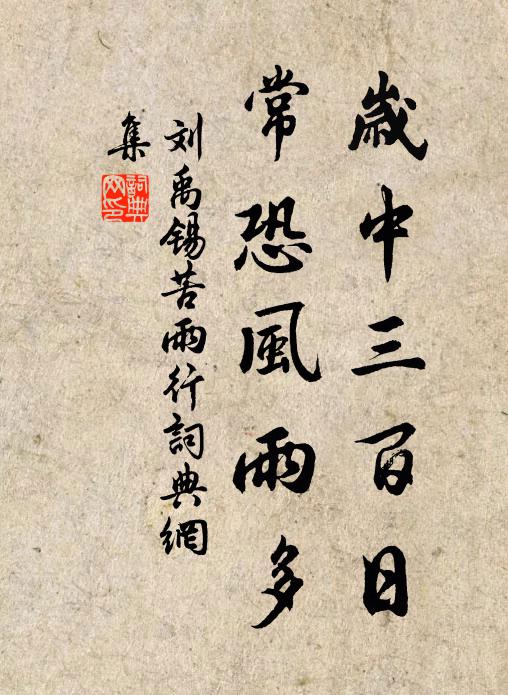 歲中三百日
常恐風雨多
刘禹錫苦雨行詞典網
集
詞典网印